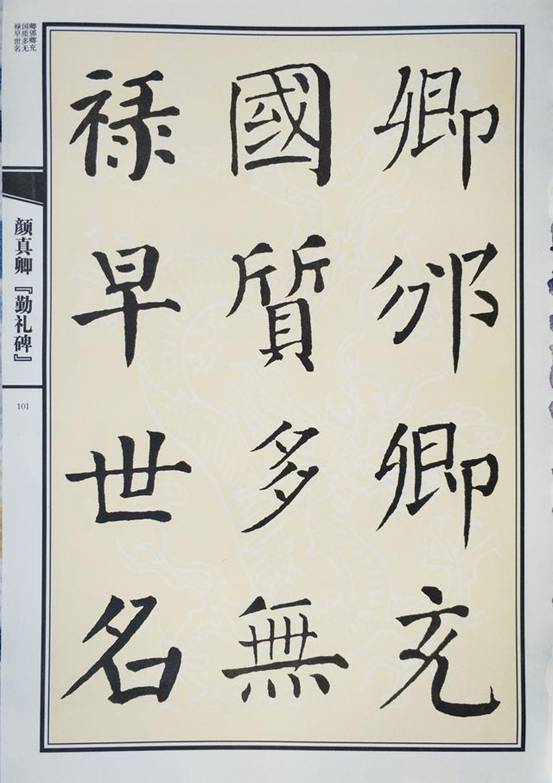 卿邠卿充
國質多無
禄早世名
卿邠卿充
国质多无
禄早世名
颜真卿『勤礼碑』
101